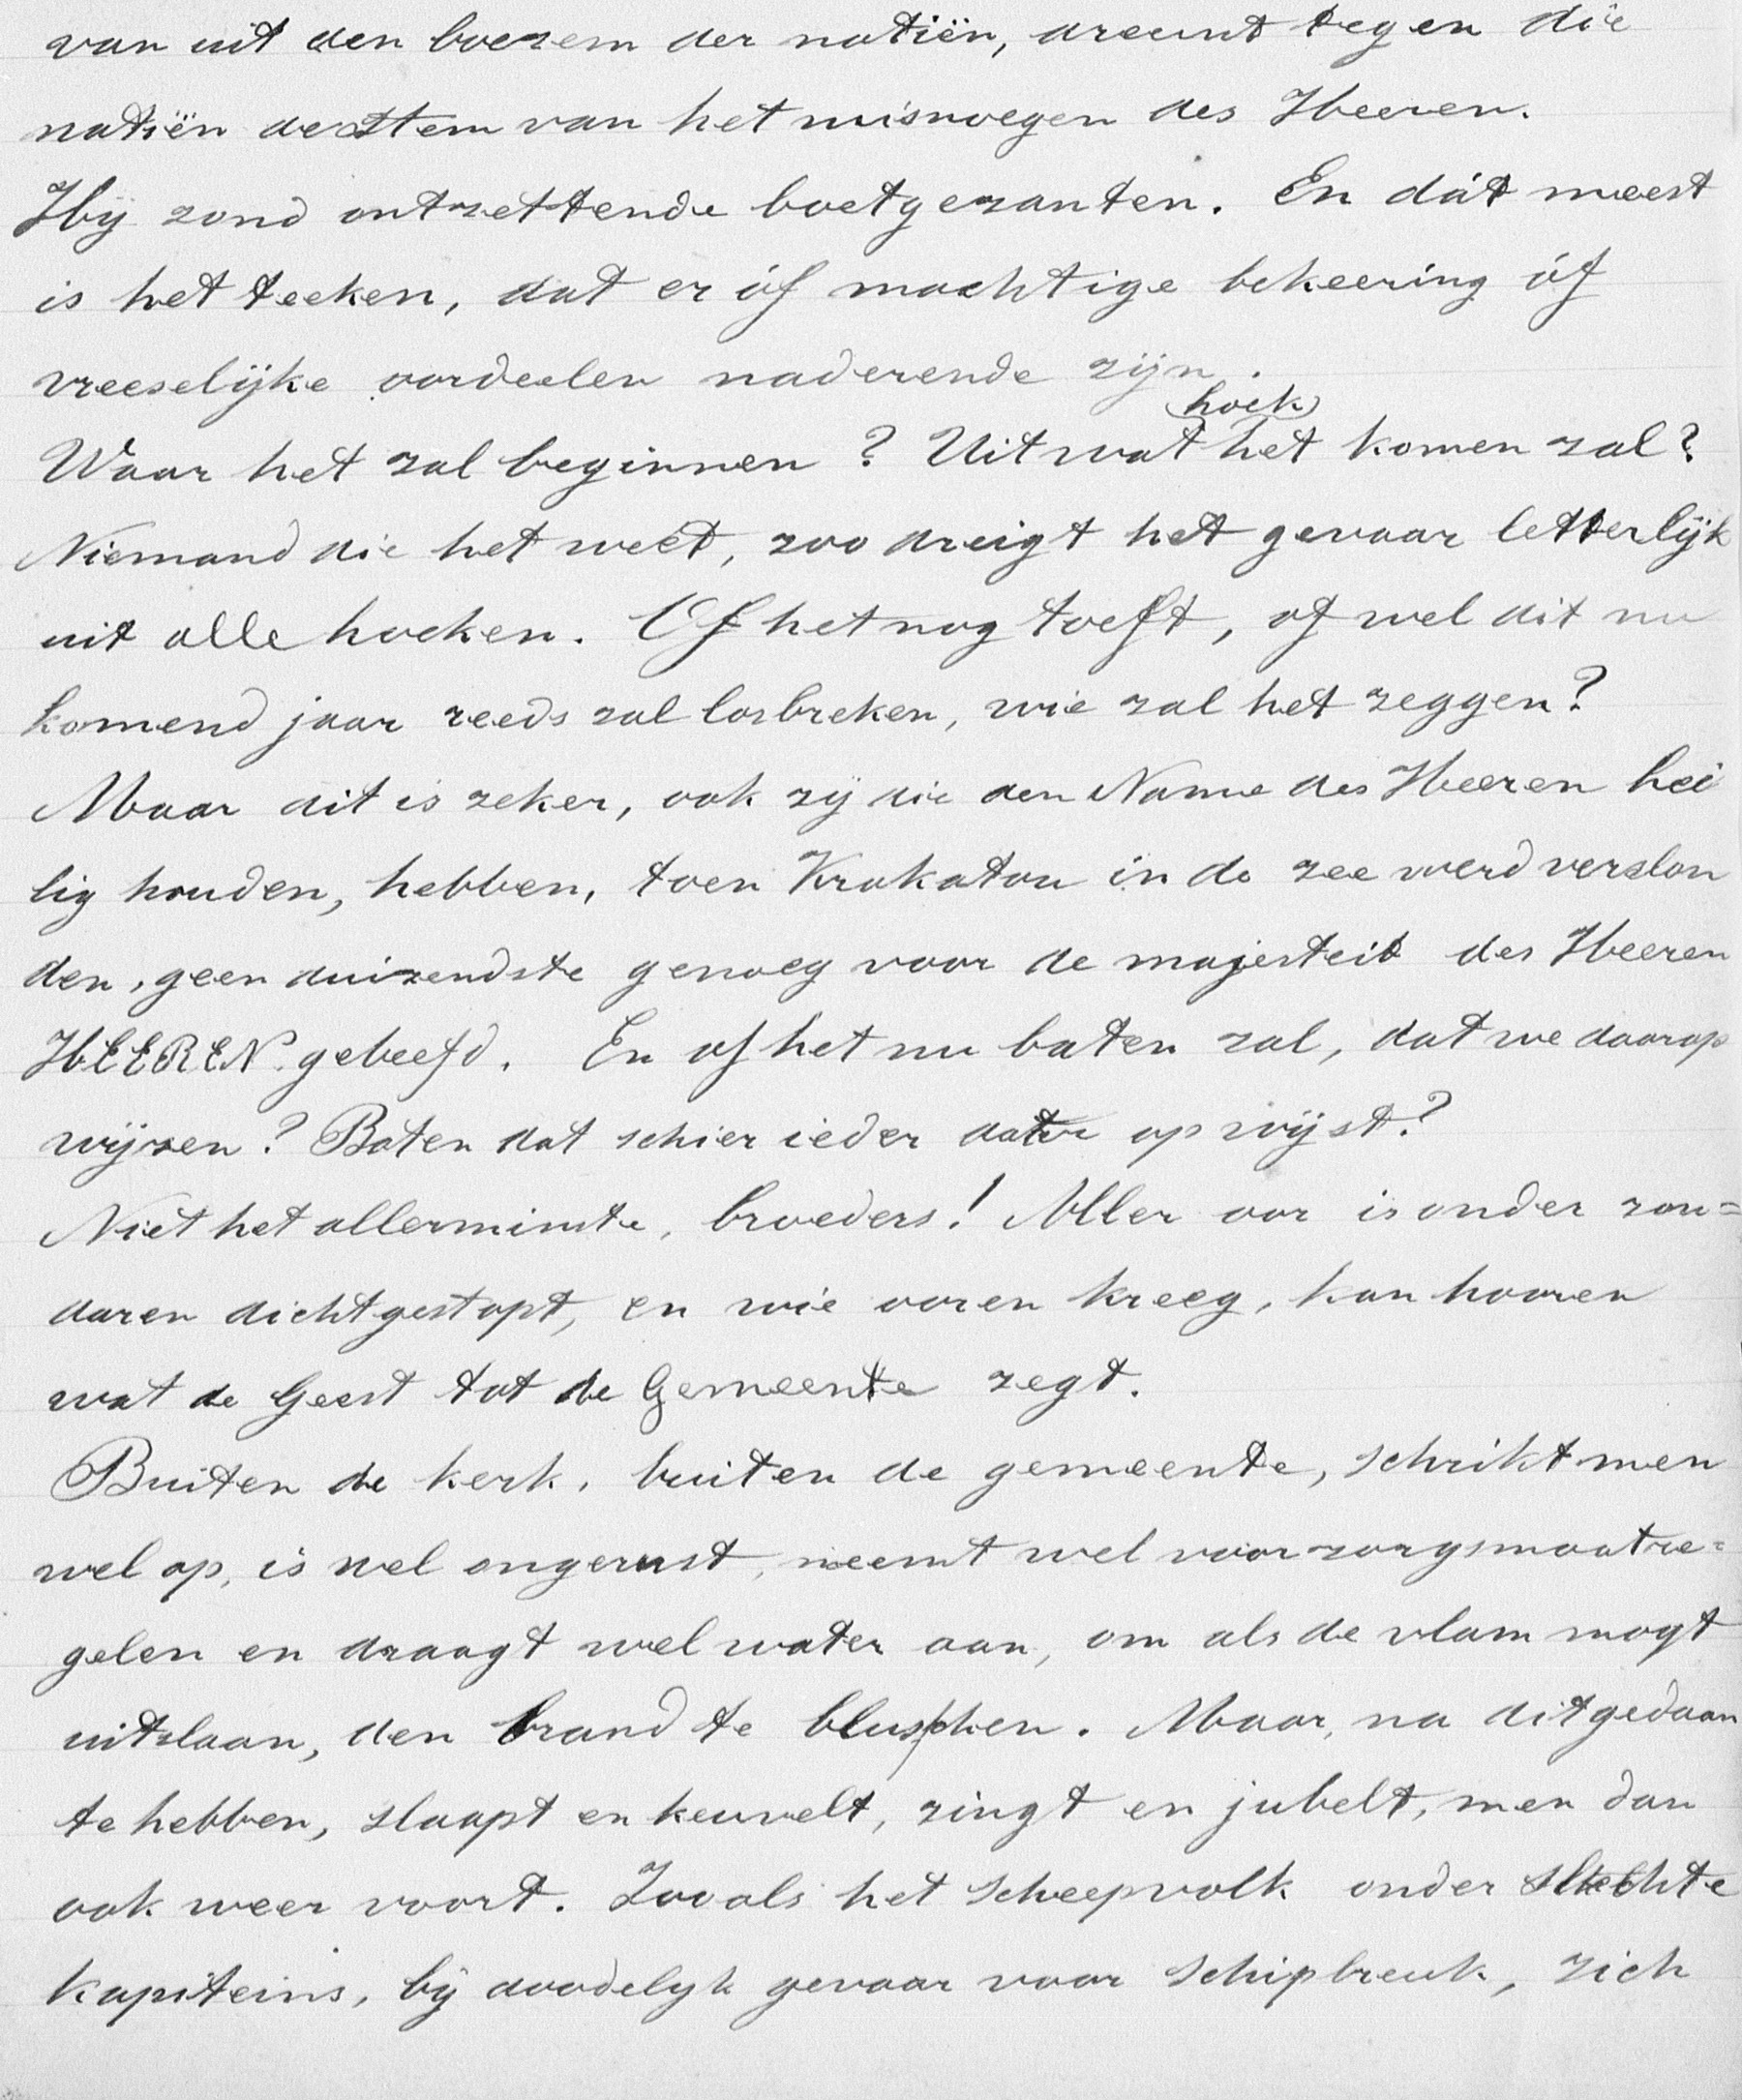 van uit den boezem der natiën, dreunt tegen die
natiën de stem van het misnoegen des Heeren.
Hij zond ontzettende boetgezanten. En dát meest
is het teeken, dat er óf machtige bekeering óf
vreeselijke oordeelen naderende zijn.
hoek
Waar het zal beginnen? Uit wat het komen zal?
Niemand die het weet, zoo dreigt het gevaar letterlijk
uit alle hoeken. Of het nog toeft, of wel dit nu
komend jaar reeds zal losbreken, wie zal het zeggen?
Maar dit is zeker, ook zij die den Name des Heeren hei
lig houden, hebben, toen Krakatau in de zee werd verslon
den, geen duizendste genoeg voor de majesteit des Heeren
HEEREN gebeefd. En of het nu baten zal, dat we daarop
wijzen? Baten dat schier ieder er op wijst?
Niet het allerminste, broeders! Aller oor is onder zon=
daren dichtgestopt, en wie ooren kreeg, kan hooren
wat de Geest tot de Gemeente zegt.
Buiten de kerk, buiten de gemeente, schrikt men
wel op, is wel ongerust, neemt wel voorzorgsmaatre=
gelen en draagt wel water aan, om als de vlam mogt
uitslaan, den brand te blusschen. Maar, na dit gedaan
te hebben, slaapt en keuvelt, zingt en jubelt, men dan
ook weer voort. Zooals het scheepvolk onder slechte
kapiteins, bij doodelyk gevaar voor schipbreuk, zich